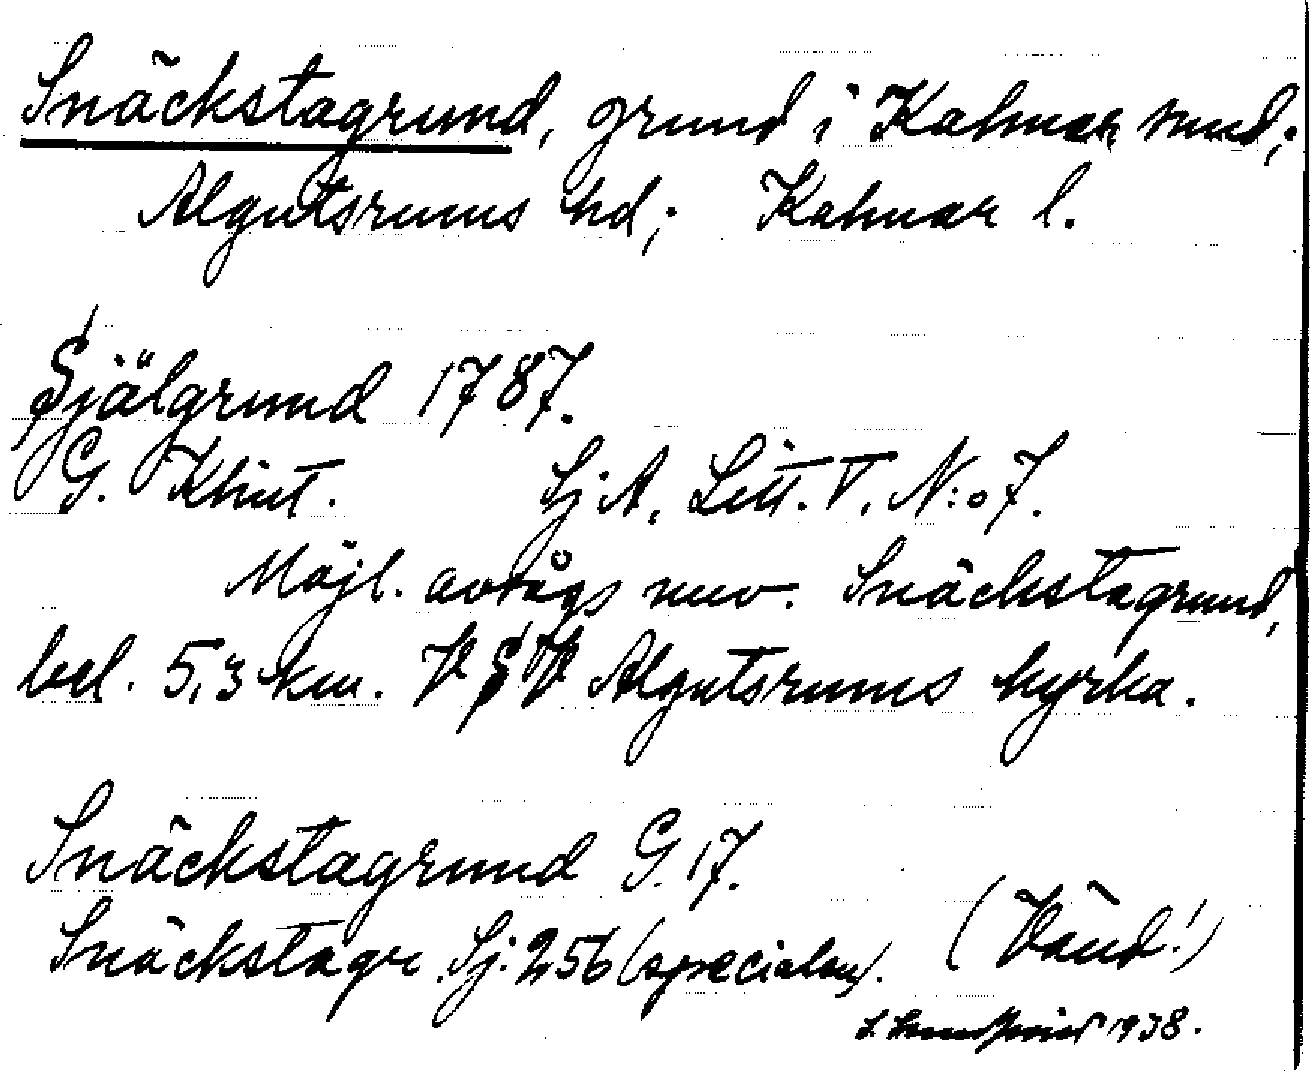 Snäckstagrund, grund i Kalmar sund;
Algutsrums hd; Kalmar l.
Själgrund 1787.
G. Klint. Sj A, Litt. V, N:o 7.
Möjl. avsågs nuv. Snäckstagrund,
bel. 5,3 km. V S V Algutsrums kyrka.
Snäckstagrund G. 17.
Snäckstagr Sj. 256 (specialen). (Vänd!)
1938.